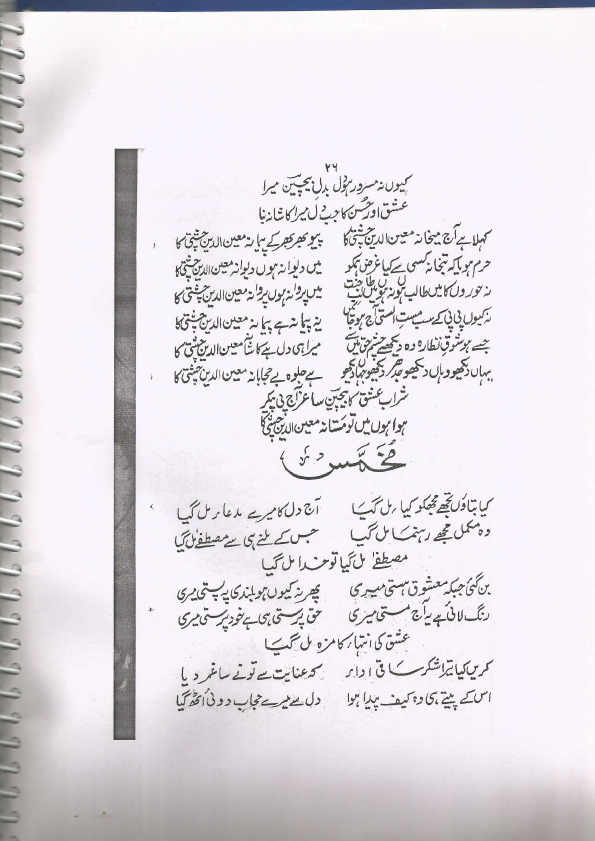 ۲۶
کیوں نہ مسرور ہو دل بدل بیچین میرا
عشق اور حسن کا جب دل میرا کاشانہ بنا
کھلا ہے آج میخانہ معین الدین چشتی کا پیو بھر بھر کے پیمانہ معین الدین چشتی کا
حرم ہو یا کہ بتخانہ کسی سے کیا غرض ہمکو میں دیوانہ ہوں دیوانہ معین الدین چشتی کا
نہ حوروں کا میں طالب ہوں نہ ہوں میں طالب جنت میں پروانہ ہوں پروانہ معین الدین چشتی کا
نہ کیوں پی پی کے سب مست الستی آج ہو جائیں یہ پیمانہ ہے پیمانہ معین الدین چشتی کا
جسے ہو شوق نظارہ وہ دیکھے چشم حق بیں سے میرا ہی دل ہے کاشانہ معین الدین چشتی کا
یہاں دیکھو وہاں دیکھو جدھر دیکھو جہاں دیکھو ہے جلوہ بے حجابانہ معین الدین چشتی کا
شراب عشق کا بیچین ساغر آج پی پی کر
ہوا ہوں میں تو مستانہ معین الدین چشتی کا
مخمس
کیا بتاؤں تجھے مجھکو کیا مل گیا آج دل کا میرے مدعا مل گیا
وہ مکمل مجھے رہنما مل گیا جس کے ملنے ہی سے مصطفےٰ مل گیا
مصطفےٰ مل گیا تو خدا مل گیا
بن گئی جبکہ معشوق ہستی میری پھر نہ کیوں ہو بلندی پہ پستی میری
رنگ لائی ہے یہ آج مستی میری حق پرستی ہی ہے خود پرستی میری
عشق کی انتہا کا مزہ مل گیا
کریں کیا تیرا شکر ساقی ادا کہ عنایت سے تو نے ساغر دیا
اس کے پیتے ہی وہ کیف پیدا ہوا دل سے میرے حجاب دوئی اٹھ گیا